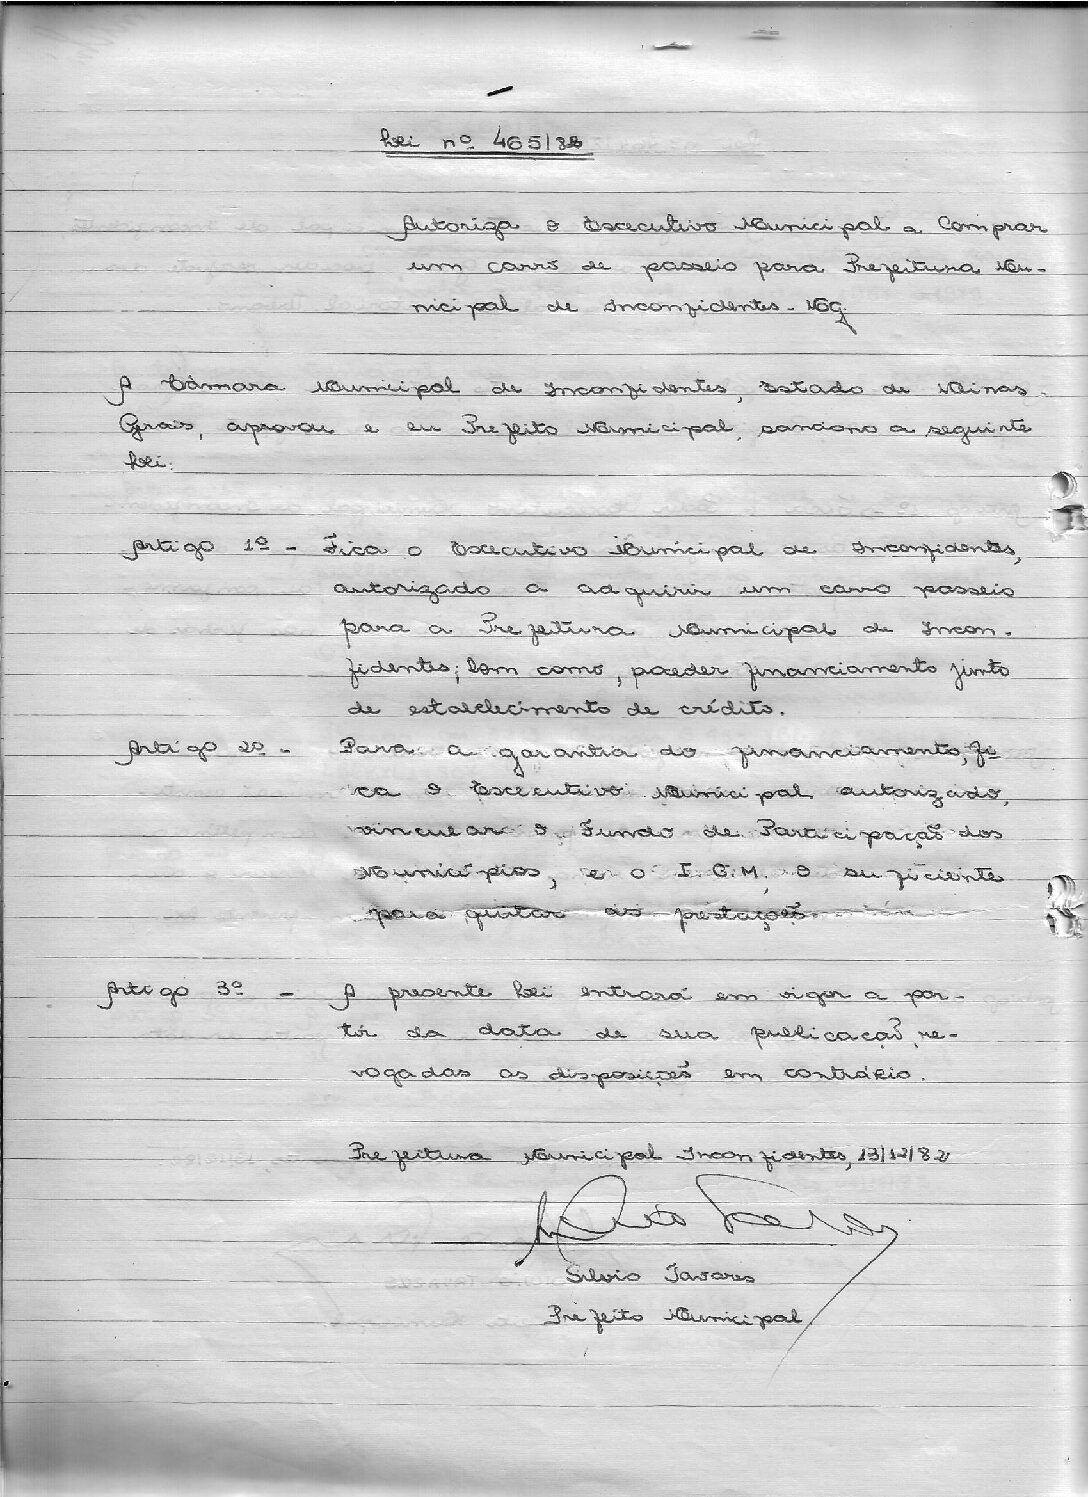 Lei nº 465/82
Autoriza o Executivo Municipal a Comprar
um carro de passeio para Prefeitura Mu-
nicipal de Inconfidentes - Mg.
A Câmara Municipal de Inconfidentes, Estado de Minas
Gerais, aprovou e eu Prefeito Municipal, sanciono a seguinte
Lei:
Artigo 1º - Fica o Executivo Municipal de Inconfidentes,
autorizado a adquirir um carro passeio
para a Prefeitura Municipal de Incon-
fidentes; bem como, proceder financiamento junto
de estabelecimento de crédito.
Artigo 2º - Para a garantia do financiamento, fi
ca o Executivo Municipal autorizado,
vincular o Fundo de Participação dos
Municípios, e o I.C.M, o suficiente
para quitar as prestações.
Artigo 3º - A presente Lei entrará em vigor a par-
tir da data de sua publicação, re-
vogadas as disposições em contrário.
Prefeitura Municipal Inconfidentes, 13/12/82
Silvio Tavares
Prefeito Municipal